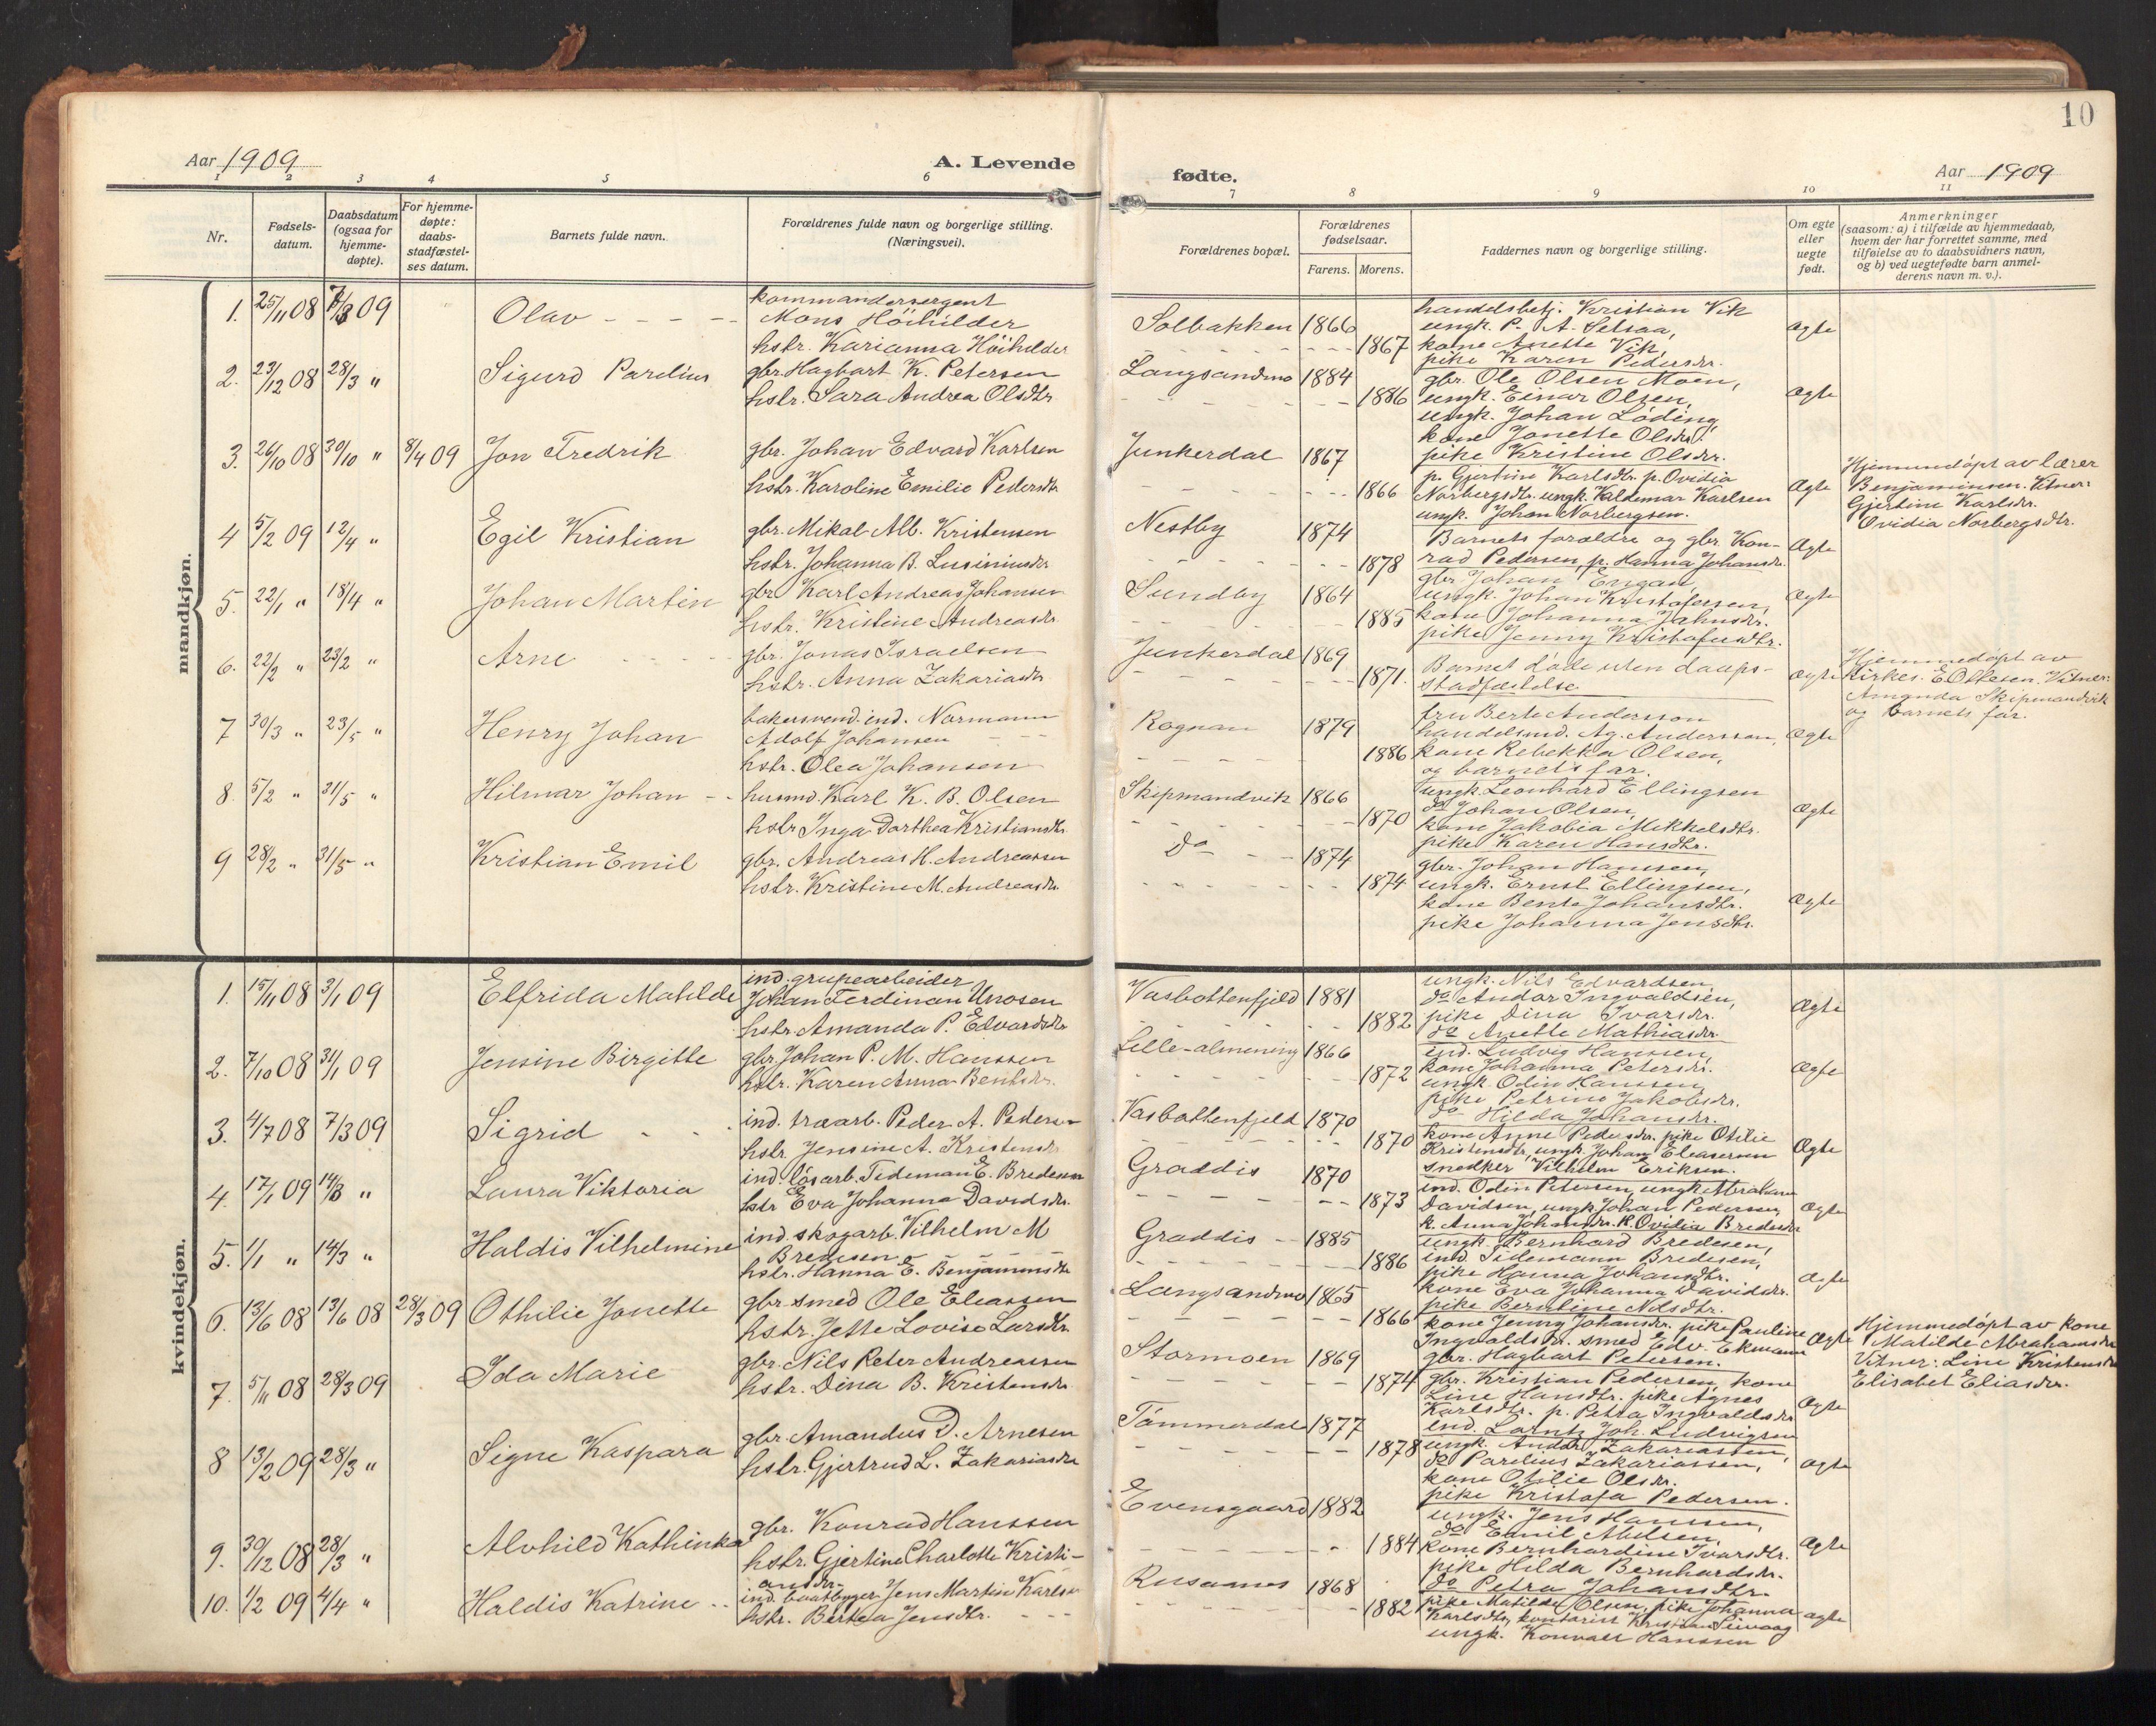 10
Aar 1909
A. Levende
fødte.
Aar 1909
1 2 3 4 5 6 7 8 9 10 11
Nr.
Fødsels-
datum.
Daabsdatum
(ogsaa for
hjemme-
døpte).
For hjemme-
døpte:
daabs-
stadfæstel-
ses datum.
Barnets fulde navn.
Forældrenes fulde navn og borgerlige stilling.
(Næringsvei).
Forældrenes bopæl.
Forældrenes
fødselsaar.
Farens. Morens.
Faddernes navn og borgerlige stilling.
Om egte
eller
uegte
født.
Anmerkninger
(saasom: a) i tilfælde av hjemmedaab,
hvem der har forrettet samme, med
tilføielse av to daabsvidners navn,
og b) ved uegtefødte barn anmel-
derens navn m. v.).
mandkjøn.
1. 25/11 08 7/3 09 Olav
kommandersergent
Mons Höihilder
hstr. Karianna Höihilder
Solbakken 1866
1867
handelsbetj. Kristian Vik
ungk. P. A. Selsaa,
kone Anette Vik,
pike Karen Pedersdr.
Ægte
2. 23/12 08 28/3 " Sigurd Parelius
gbr. Hagbart K. Petersen
hstr. Sara Andrea Olsdtr
Langsandmo 1884
1886
gbr. Ole Olsen Moen,
ungk. Einar Olsen,
ungk. Johan Löding,
kone Jonette Olsdr.
pike Kristine Olsdr.
Ægte
3. 26/10 08 30/10 " 8/4 09 Jon Fredrik
gbr. Johan Edvard Karlsen
hstr. Karoline Emilie Pedersdtr
Junkerdal 1867
1866
p. Gjertine Karlsdtr. p. Ovidia
Norbergsdtr. ungk. Valdemar Karlsen
ungk. Johan Norbergsen.
Ægte
Hjemmedöpt av lærer
Benjaminsen. Vitner:
Gjertine Karlsdr.
Ovidia Norbergsdtr.
4 5/2 09 12/4 " Egil Kristian
gbr. Mikal Alb. Kristensen
hstr. Johanna B. Lusiniusdr
Nestby 1874
1878
Barnets forældre og gbr. Kon-
rad Pedersen, p. Hanna Johansdr.
Ægte
5. 22/1 " 18/4 " Johan Martin
gbr. Karl Andreas Johansen
hstr. Kristine Andreasdr.
Sundby 1864
1885
gbr. Johan Engan,
ungk. Johan Kristofersen,
kone Johanna Jahnsdr.
pike Jenny Kristofersdtr.
Ægte
6. 22/2 " 23/2 " Arne
gbr. Jonas Israelsen
hstr. Anna Zakariasdr.
Junkerdal 1869
1871.
Barnet döde uten daaps-
stadfæstelse
Ægte
Hjemmedöpt av
Kirkes. E. Ottesen. Vitner:
Amanda Skipmandvik
og barnets far.
7 30/3 " 23/5 " Henry Johan
bakersvend ind. Normann
Adolf Johansen
hstr. Olea Johansen
Rognan 1879
1886
fru Berte Andersson
handelsmd. Ag. Andersson,
kone Rebekka Olsen,
og barnets far.
Ægte
8. 5/2 " 31/5 " Hilmar Johan
husmd. Karl K. B. Olsen
hstr Inga Dorthea Kristiansdtr
Skipmandvik 1866
1870
ungk. Leonhard Ellingsen
do Johan Olsen,
kone Jakobia Mikkelsdtr.
pike Karen Hansdtr.
Ægte
9 28/2 " 31/5 " Kristian Emil
gbr. Andreas H. Andreassen
hstr. Kristine M. Andreasdr.
Do 1874
1874
gbr. Johan Hanssen,
ungk. Ernst Ellingsen,
kone Bente Johansdtr.
pike Johanna Jensdtr.
Ægte
kvindekjøn.
1. 15/11 08 3/1 09 Elfrida Mathilde
ind. grupearbeider
Johan Ferdinan Unosen
hstr. Amanda P. Edvardsdr
Vasbottenfjeld 1881
1882
ungk. Nils Edvardsen,
do Andor Ingvaldsen,
pike Dina Ivarsdr.
do Anette Mathiasdr.
Ægte
2. 7/10 08 31/1 09 Jensine Birgitte
gbr. Johan P. M. Hanssen
hstr. Karen Anna Bentsdr.
Lille-almening 1866
1872
ind. Ludvig Hanssen,
kone Johanna Petersdr.
ungk. Odin Hanssen,
pike Petrine Jakobsdr.
do Hilda Johansdr.
Ægte
3. 4/7 08 7/3 09 Sigrid
ind. træarb. Peder A. Pedersen
hstr. Jensine A. Kristensdr
Vasbottenfjeld 1870
1870
kone Anne Pedersdr, pike Otilie
Kristensdtr, ungk. Johan Eleasersen
snedker Vilhelm Eriksen.
Ægte
4. 17/1 09 14/3 " Laura Viktoria
ind. lösarb. Tideman E. Bredesen
hstr Eva Johanna Davidsdr.
Graddis 1870
1873
ind. Odin Petersen, ungk. Abraham
Davidsen, ungk. Johan Pedersen,
k. Anna Johansdr. k. Ovidia Bredesdr
Ægte
5. 1/1 " 14/3 " Haldis Vilhelmine
ind. skogarb. Vilhelm M
Bredesen
hstr. Hanna E. Benjaminsdtr
Graddis 1885
1886
ungk. Bernhard Bredesen,
ind. Tidemann Bredesen,
pike Hanna Johansdtr.
kone Eva Johanna Davidsdr.
pike Berntine Nilsdtr.
Ægte
6. 13/6 08 13/6 08 28/3 09 Othilie Jonette
gbr. smed Ole Eleassen
hstr. Jette Lovise Larsdtr.
Langsandmo 1865
1866
kone Jenny Johansdr, pike Pauline
Ingvaldsdr. smed Edv. Ekmann
gbr. Hagbart Petersen.
Ægte
Hjemmedöpt av kone
Matilde Abrahamsdr
Vitner: Line Kristensdr
Elisabet Eliasdr.
7. 5/11 08 28/3 09 Ida Marie
gbr. Nils Peter Andreassen
hstr. Dina B. Kristensdr
Stormoen 1869
1874
gbr. Kristian Pedersen, kone
Line Hansdtr. pike Agnes
Karlsdtr. p. Petra Ingvaldsdr
Ægte
8 13/2 09 28/3 " Signe Kaspara
gbr. Amandus D. Arnesen
hstr. Gjertrud L. Zakariasdr
Tömmerdal 1877
1878
ind. Lorntz Joh. Ludvigsen
ungk. Andor Zakariassen,
do Parelius Zakariassen,
kone Otilie Olsdr.
pike Kristofa Pedersen.
Ægte
9. 30/12 08 28/3 " Alvhild Kathinka
gbr. Konrad Hanssen
hstr. Gjertine Charlotte Kristi-
ansdr.
Evensgaard 1882
1884
ungk. Jens Hanssen,
do Emil Abelsen,
kone Bernhardine Ivarsdtr.
pike Hilda Bernhardsdr.
do Petra Johansdtr.
Ægte
10. 1/2 09 4/4 " Haldis Katrine
ind. baatbygger Jens Martin Karlsen
hstr. Bertea Jensdtr.
Rusaanes 1868
1882
pike Matilde Olsen, pike Johanna
Karlsdtr, kontorist Kristian Seivaag
ungk. Konvalt Hanssen
Ægte